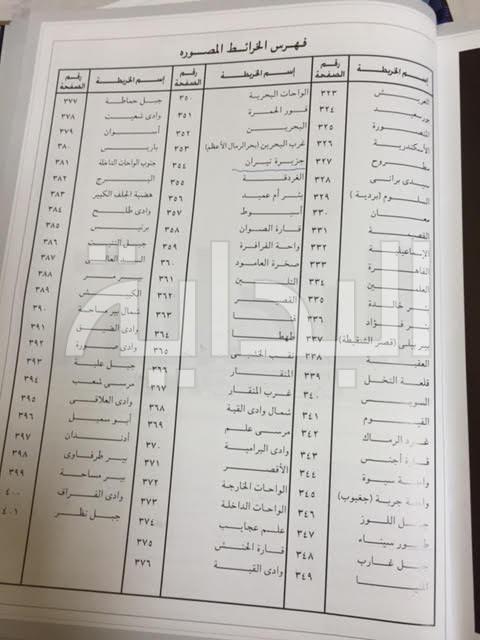 فهرس الخرائط المصوره
إسم الخريطة رقم الصفحة
العريش ٣٢٣
بورسعيد ٣٢٤
المنصورة ٣٢٥
الأسكندرية ٣٢٦
مطروح ٣٢٧
سيدى برانى ٣٢٨
السلوم (بردية) ٣٢٩
معان ٣٣٠
القصيمة ٣٣١
الإسماعيلية ٣٣٢
القاهرة ٣٣٣
العلمين ٣٣٤
بئر خالدة ٣٣٥
بئر فؤاد ٣٣٦
بير بيلى (قصر الشنقيطة) ٣٣٧
العقبة ٣٣٨
قلعة النخل
السويس ٣٤٠
الفيوم ٣٤١
غرد الرماك ٣٤٢
قارة أجنس ٣٤٣
واحة سيوة ٣٤٤
واحة جربة (جغبوب) ٣٤٥
جبل اللوز ٣٤٦
طور سيناء ٣٤٧
جبل غارب ٣٤٨
المنيا ٣٤٩
إسم الخريطة رقم الصفحة
الواحات البحرية ٣٥٠
غور الحمرة ٣٥١
البحرين ٣٥٢
غرب البحرين (بحر الرمال الأعظم) ٣٥٣
جزيرة تيران ٣٥٤
الغردقة ٣٥٥
بئر أم عميد ٣٥٦
أسيوط ٣٥٧
قارة الصوان ٣٥٨
واحة الفرافرة ٣٥٩
صخرة العامود ٣٦٠
٣٦١
القصير ٣٦٢
قنا ٣٦٣
طهطا ٣٦٤
نقب الخشبى ٣٦٥
المنقار ٣٦٦
غرب المنقار ٣٦٧
شمال وادى القبة ٣٦٨
مرسى علم ٣٦٩
وادى البرامية ٣٧٠
الأقصر ٣٧١
الواحات الخارجة ٣٧٢
الواحات الداخلة ٣٧٣
علم عجايب ٣٧٤
قارة الحنش ٣٧٥
وادى القبة ٣٧٦
إسم الخريطة رقم الصفحة
جبل حماطة ٣٧٧
وادى شعيت ٣٧٨
أسوان ٣٧٩
باريس ٣٨٠
جنوب الواحات الداخلة ٣٨١
البرج ٣٨٢
هضبة الجلف الكبير ٣٨٣
وادى طلح ٣٨٤
برنيس ٣٨٥
جبل ٣٨٦
السد العالى ٣٨٧
بير مر ٣٨٨
٣٨٩
شمال بير مساحة ٣٩٠
وادى الضيق ٣٩١
وادى صورة ٣٩٢
جبل علبة ٣٩٣
مرسى شعب ٣٩٤
وادى العلاقى ٣٩٥
أبو سمبل ٣٩٦
أدندان ٣٩٧
بير طرفاوى ٣٩٨
بير مساحة ٣٩٩
وادى الفراف ٤٠٠
جبل نظر ٤٠١
البداية